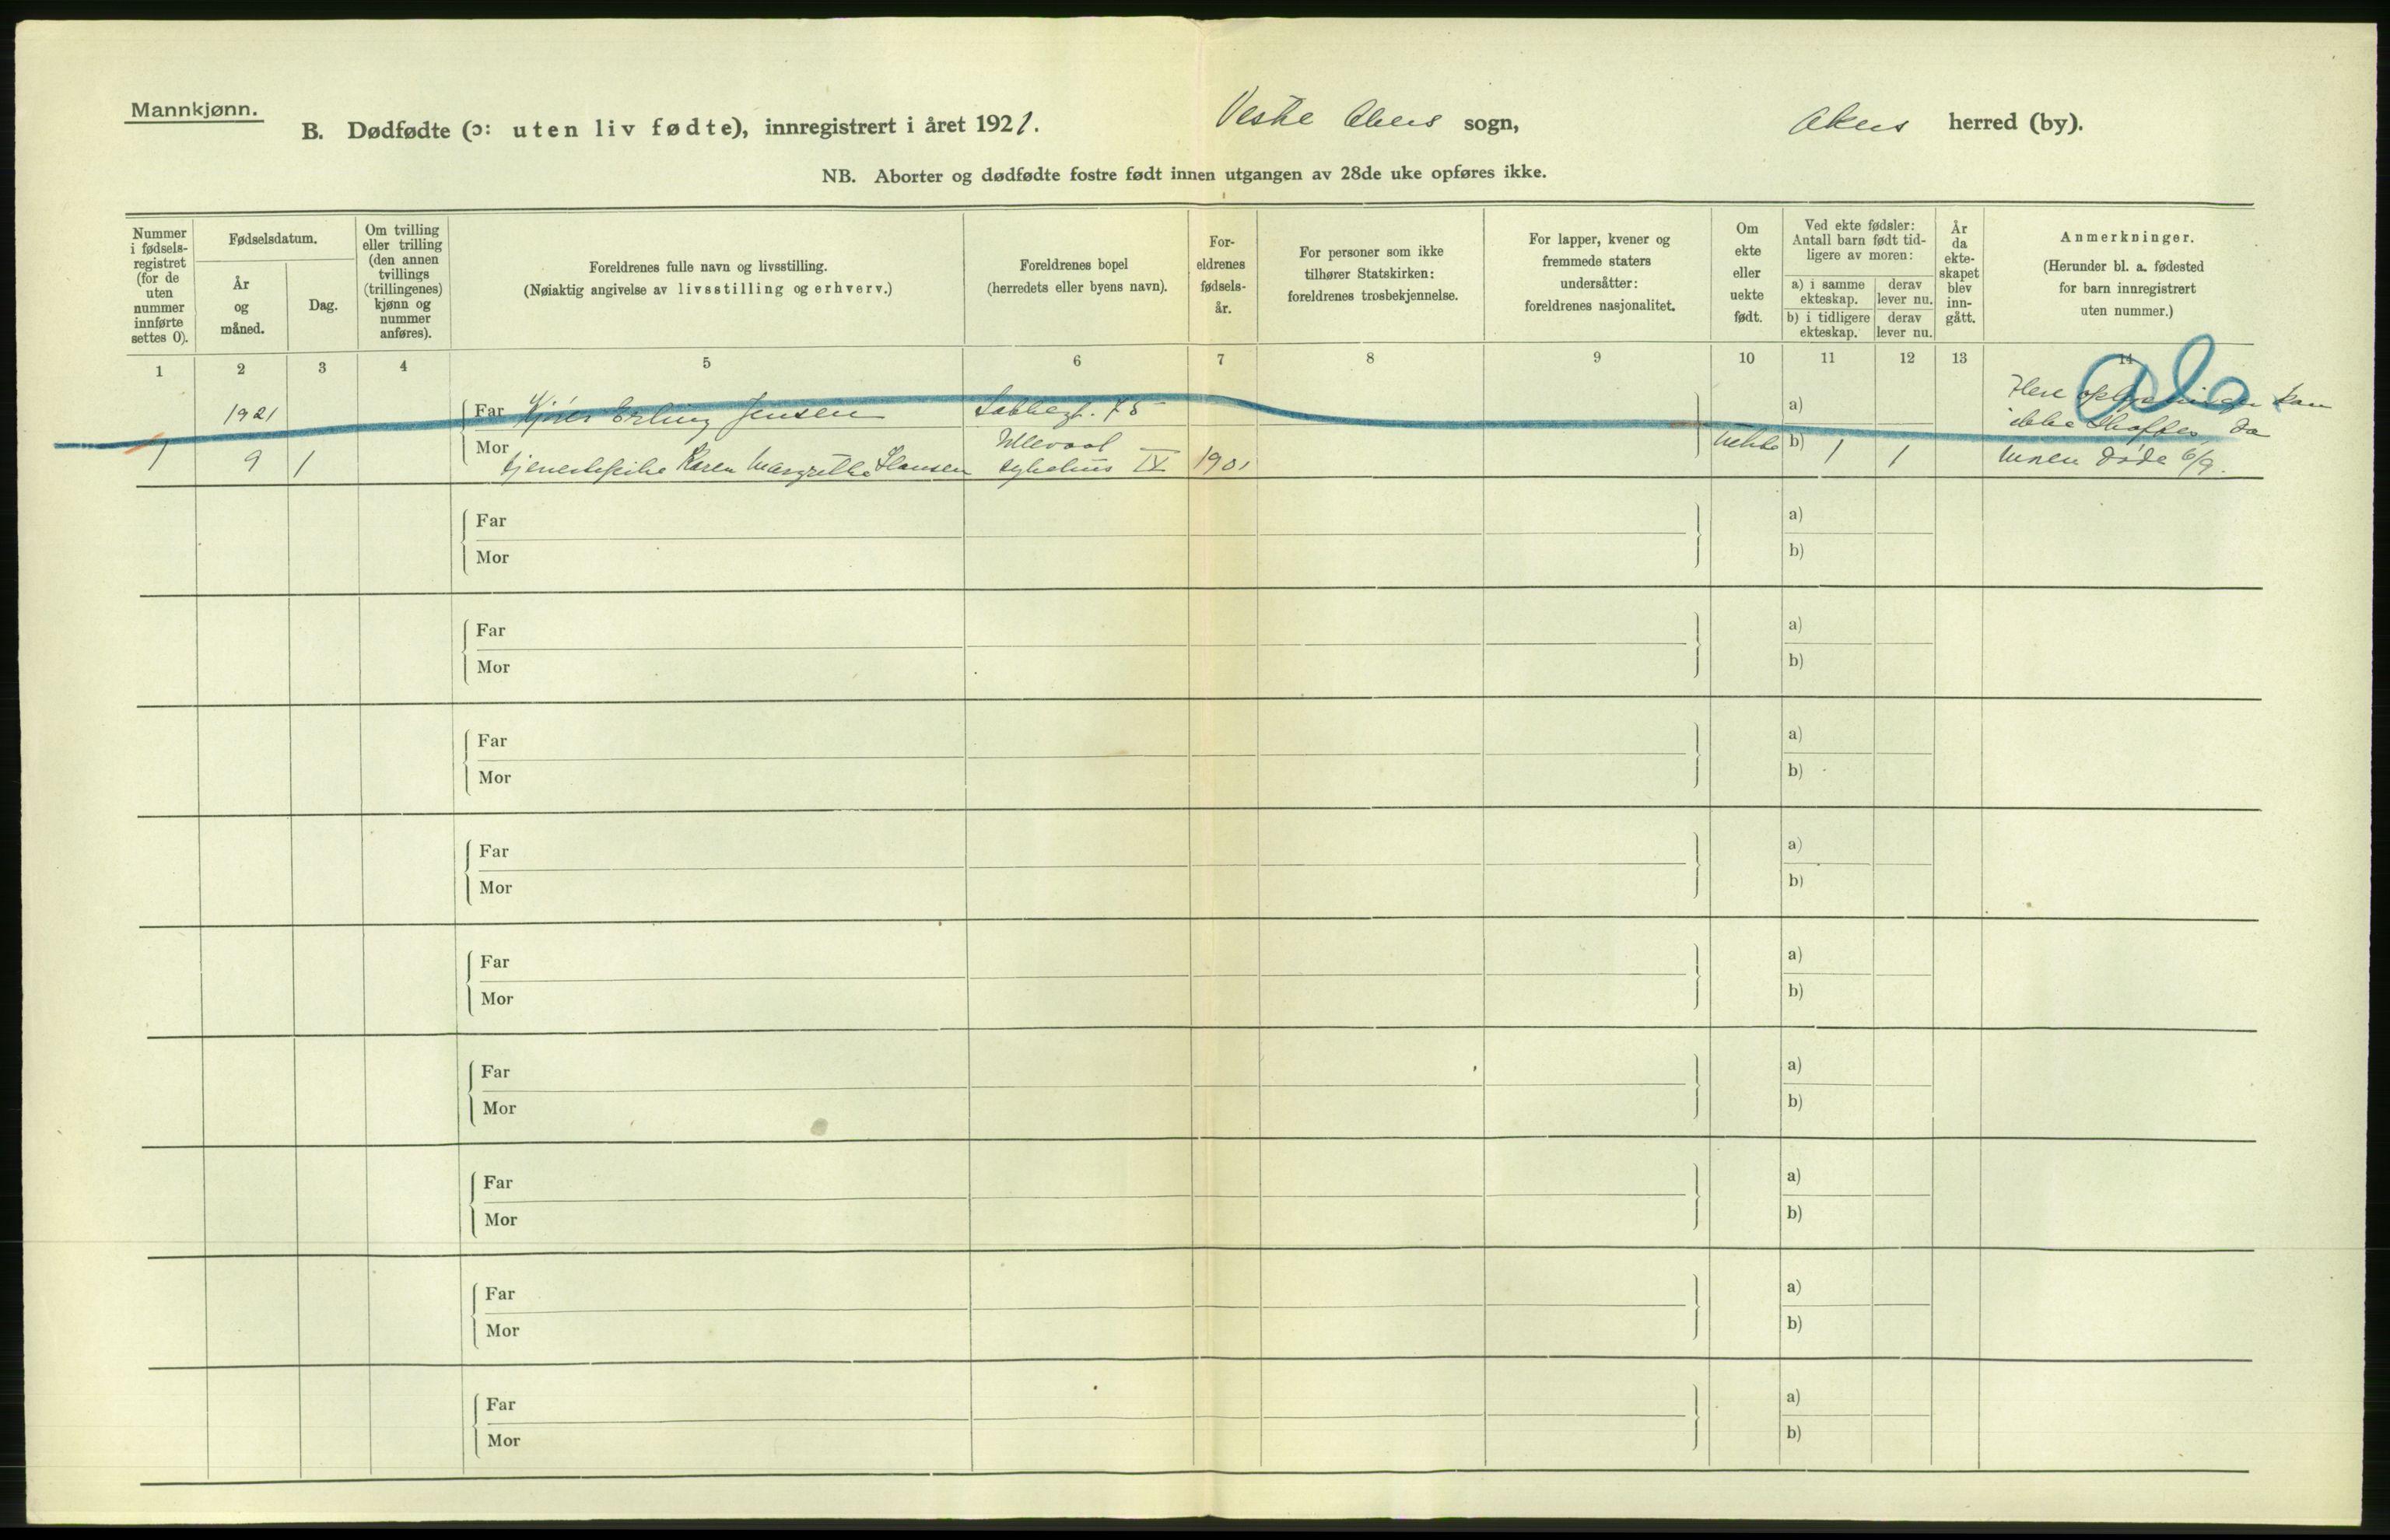 Mannkjønn.
B. Dødfødte (ɔ: uten liv fødte), innregistrert i året 1921. Vestre Akers sogn, Akers herred (by).
NB. Aborter og dødfødte fostre født innen utgangen av 28de uke opføres ikke.
Nummer
i fødsels-
registret
(for de
uten
nummer
innførte
settes 0).
Fødselsdatum.
År
og
måned.
Dag.
Om tvilling
eller trilling
(den annen
tvillings
(trillingenes)
kjønn og
nummer
anføres).
Foreldrenes fulle navn og livsstilling.
(Nøiaktig angivelse av livsstilling og erhverv.)
Foreldrenes bopel
(herredets eller byens navn).
For-
eldrenes
fødsels-
år.
For personer som ikke
tilhører Statskirken:
foreldrenes trosbekjennelse.
For lapper, kvener og
fremmede staters
undersåtter:
foreldrenes nasjonalitet.
Om
ekte
eller
uekte
født.
Ved ekte fødsler:
Antall barn født tid-
ligere av moren:
a) i samme
ekteskap.
derav
lever nu.
b) i tidligere
ekteskap.
derav
lever nu.
År
da
ekte-
skapet
blev
inn-
gått.
Anmerkninger.
(Herunder bl. a. fødested
for barn innregistrert
uten nummer.)
1 2 3 4 5 6 7 8 9 10 11 12 13 14
1921 Far Erling Jensen a) Flere oplysninger kan
ikke skaffes, da
Ullevaal
1 9 1 Mor tjenestepike Karen Margrethe Hansen sykehus IX 1901 Uekte b) 1 1 døde 6/9.
Far a)
Mor b)
Far a)
Mor b)
Far a)
Mor b)
Far a)
Mor b)
Far a)
Mor b)
Far a)
Mor b)
Far a)
Mor b)
Far a)
Mor b)
Far a)
Mor b)